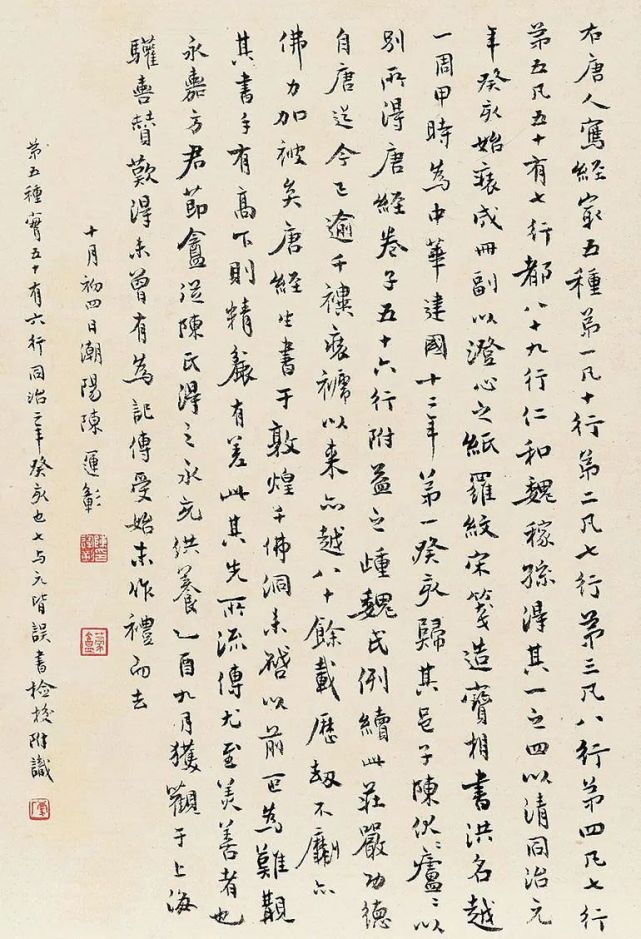 右唐人寫经家五種第一凡十行第二凡七行第三凡八行第四凡七行
第五凡五十有七行都八十九行仁和魏稼孫得其一之四以清同治元
年癸亥始裱成冊副以澄心之紙羅紋宋箋造寶相書洪名越
一周甲時為中華建國十二年第一癸亥歸其邑子陳伏廬=以
别所得唐經卷子五十六行附益之踵魏氏例續此莊嚴功德
自唐迄今已逾千禩裱褫以来亦越八十餘載歷劫不劘亦
佛力加被矣唐經生書于敦煌千佛洞未啓以前叵為難覯
其書手有高下則精麤有差此其先所流傳尤至美善者也
永嘉方君節盦從陳氏得之永充供養乙酉九月獲觀于上海
驩喜贊歎得未曾有為記傳受始末作禮而去
十月初四日潮陽陳運彰
第五種實五十有六行同治二年癸亥也七与元皆誤書檢校附識